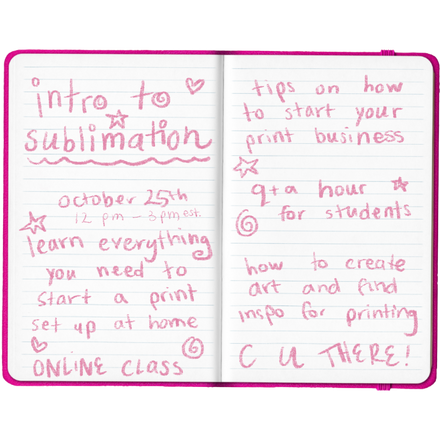 intro to
sublimation
october 25th
12 pm - 3pm est.
learn everything
you need to
start a print
set up at home
ONLINE CLASS
tips on how
to start your
print business
q+a hour
for students
how to create
art and find
inspo for printing
C U THERE!